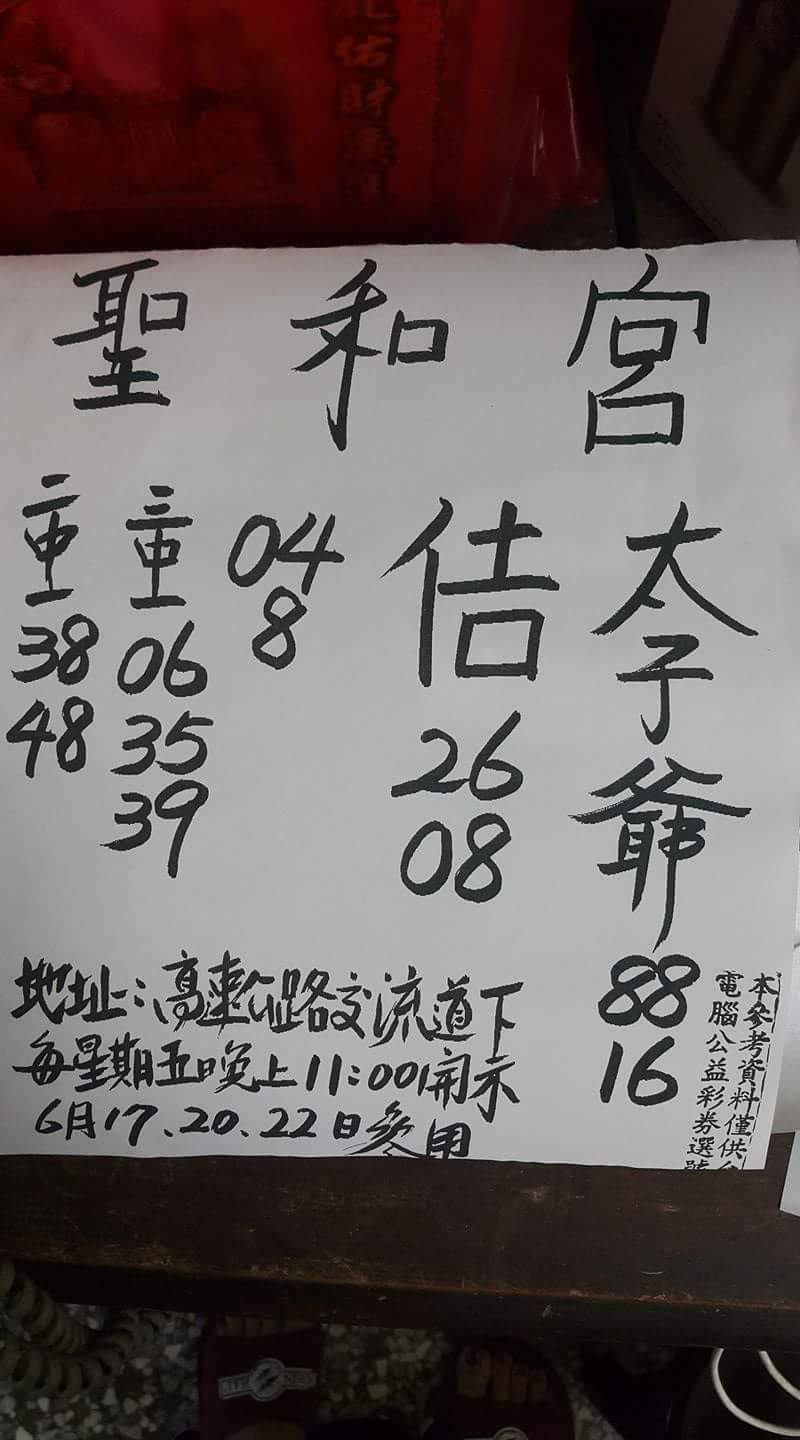 佑財庫
聖和宮
太子爺
88
16
佶
26
08
04
8
三中一
06
35
39
二中一
38
48
地址:高速公路交流道下
每星期五晚上11:00開示
6月17.20.22日參用
本參考資料僅供
電腦公益彩券選號